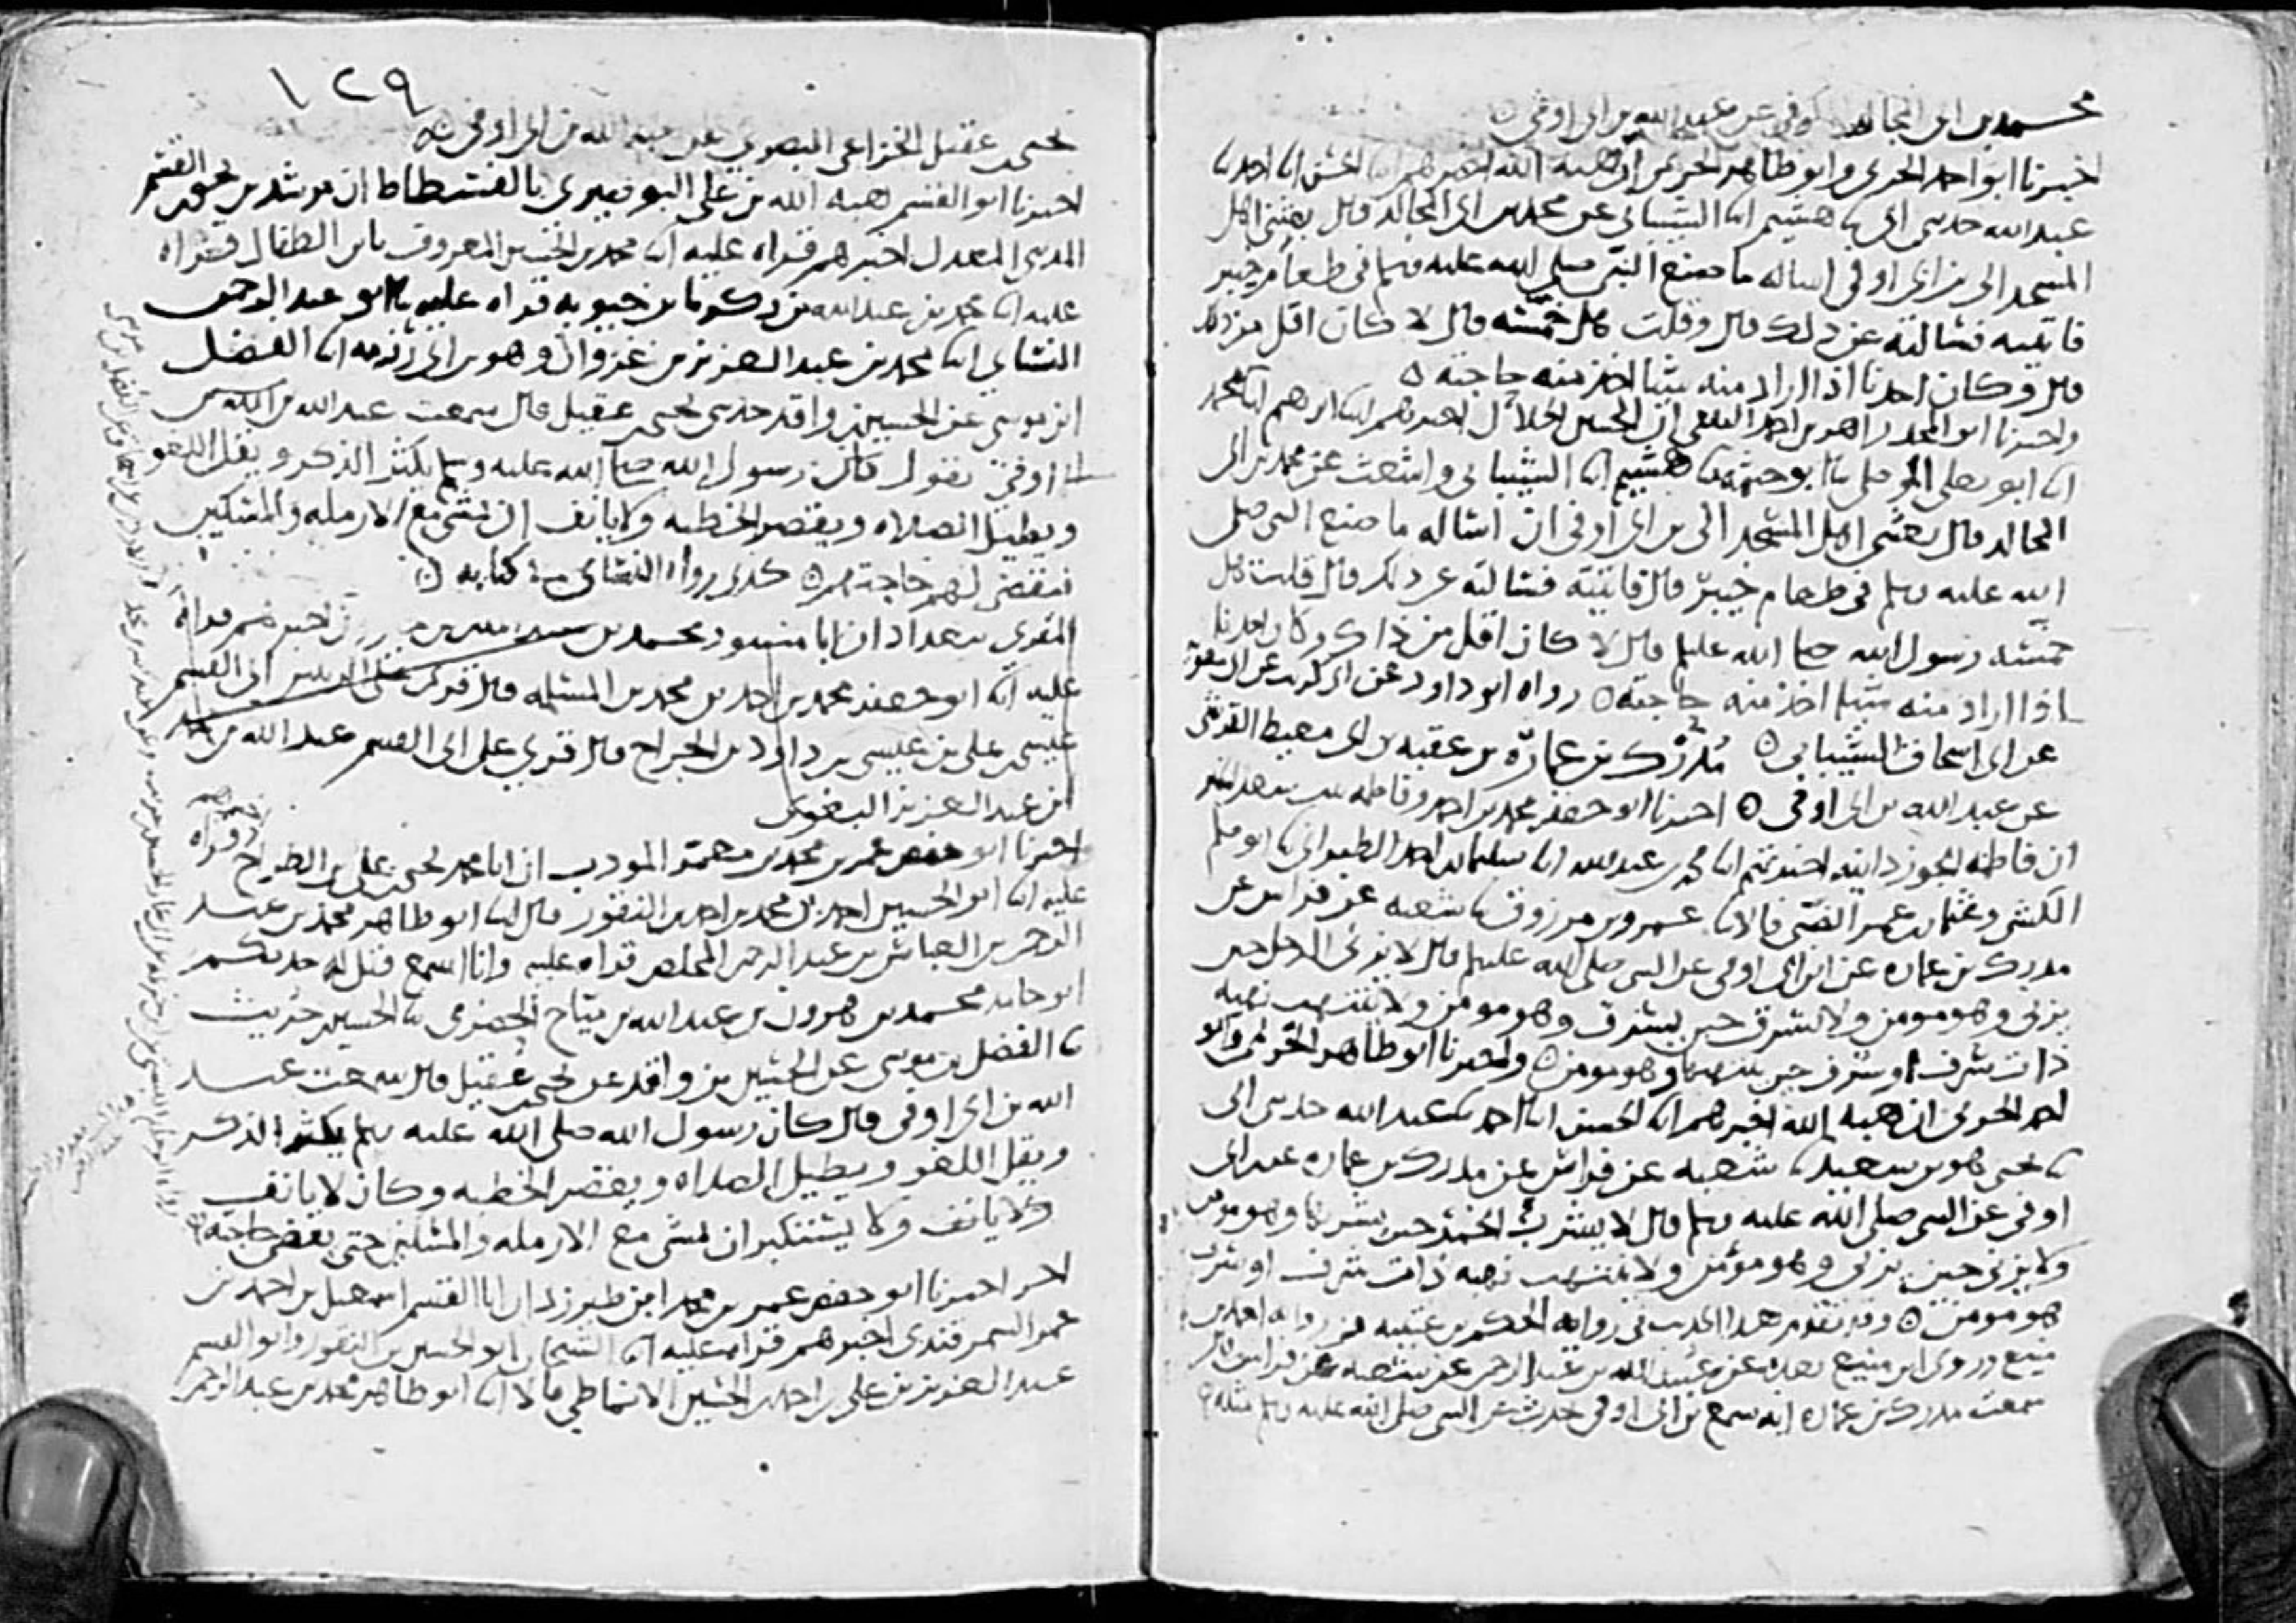 محمد بن ابي المجالد كوفي عن عبد الله بن ابي اوفى ه
اخبرنا ابو احمد الحربي وابو طاهر الحريمي ان هبة الله اخبرهم ابنا الحسن ابنا احمد نا
عبد الله حدثني ابي نا هشيم انا الشيباني عن محمد بن ابي المجالد قال بعثني اهل
المسجد الى بن ابي اوفى اساله ما صنع النبي صلى الله عليه وسلم في طعام خيبر
فاتيته فسالته عن ذلك قال وقلت هل خمسه قال لا كان اقل من ذلك
قال وكان احدنا اذا اراد منه شيا اخذ منه حاجته ه
واخبرنا ابو المجد زاهر بن احمد الثقفي ان الحسين الخلال اخبرهم ابنا ابرهيم ابنا محمد
انا ابو يعلى الموصلي نا ابو خيثمه نا هشيم انا الشيباني واشعث عن محمد بن ابي
المجالد قال بعثني اهل المسجد الى بن ابي اوفى ان اساله ما صنع النبي صلى
الله عليه وسلم في طعام خيبر قال فاتيته فسالته عن ذلك قال قلت هل
خمسه رسول الله صلى الله عليه وسلم قال لا كان اقل من ذاك وكان احدنا
اذا اراد منه شيا اخذ منه حاجته ه رواه ابو داود عن ابي كريب عن ابي معويه
عن ابي اسحاق الشيباني ه مدرك بن عماره بن عقبه بن ابي معيط القرشي
عن عبد الله بن ابي اوفى ه اخبرنا ابو جعفر محمد بن احمد وفاطمه بنت سعد الخير
ان فاطمه الجوزدانيه اخبرتهم ابنا محمد بن عبد الله ابنا سليمان بن احمد الطبراني نا ابو مسلم
الكشي وعثمان بن عمر الضبي قالا نا عمرو بن مرزوق نا شعبه عن فراس عن
مدرك بن عماره عن ابن ابي اوفى عن النبي صلى الله عليه وسلم قال لا يزني الرجل حين
يزني وهو مومن ولا يسرق حين يسرق وهو مومن ولا ينتهب نهبه
ذات شرف او سرف حين ينتهبها وهو مومن ه واخبرنا ابو طاهر الحريمي وابو
احمد الحربي ان هبة الله اخبرهم ابنا الحسن ابنا احمد نا عبد الله حدثني ابي
نا يحيى هو بن سعيد نا شعبه عن فراس عن مدرك بن عماره عن ابن ابي
اوفى عن النبي صلى الله عليه وسلم قال لا يشرب الخمر حين يشربها وهو مومن
ولا يزني حين يزني وهو مؤمن ولا ينتهب نهبه ذات شرف او سرف
هو مومن ه وقد تقدم هذا الحديث في رواية الحكم بن عتيبه من رواية احمد بن
منيع وروى ابن منيع بعده عن عبد الله بن عبد الرحمن عن شعبه عن فراس قال
سمعت مدرك بن عماره انه سمع بن ابي اوفى حدث عن النبي صلى الله عليه وسلم مثله ه
١٢٩
يحيى بن عقيل الخزاعي البصري عن عبد الله بن ابي اوفى ه
اخبرنا ابو القسم هبة الله بن علي البوصيري بالفسطاط ان مرشد بن يحيى بن القسم
المديني المعدل اخبرهم قراه عليه ابنا محمد بن الحسين المعروف بابن الطفال قراه
عليه ابنا محمد بن عبد الله بن زكريا بن حيويه قراه عليه نا ابو عبد الرحمن
النسائي ابنا محمد بن عبد العزيز بن غزوان وهو بن ابي رزمه ابنا الفضل
ابن موسى عن الحسين بن واقد حدثني يحيى بن عقيل قال سمعت عبد الله بن ابي
اوفى يقول كان رسول الله صلى الله عليه وسلم يكثر الذكر ويقل اللغو
ويطيل الصلاه ويقصر الخطبه ولا يانف ان يمشي مع الارمله والمسكين
فيقضي لهم حاجتهم ه كذى رواه النسائي في كتابه ه
المقرى ببغداد ان ابا منصور محمد بن اخبرهم قراه
عليه ابنا ابو جعفر محمد بن احمد بن محمد بن المسلمه قال قرئ على ابي القسم
عيسى بن علي بن عيسى بن داود بن الجراح قال قرئ على ابي القسم عبد الله بن محمد
ابن عبد العزيز البغوي
اخبرنا ابو حفص عمر بن محمد بن معمر المودب ان ابا محمد يحيى بن علي بن الطراح اخبرهم قراه
عليه ابنا ابو الحسين احمد بن محمد بن احمد بن النقور قال ابنا ابو طاهر محمد بن عبد
الرحمن بن العباس بن عبد الرحمن المخلص قراه عليه وانا اسمع قيل له حدثكم
ابو حامد محمد بن هرون بن عبد الله بن مياح الحضرمي نا الحسين بن حريث
نا الفضل بن موسى عن الحسين بن واقد عن يحيى بن عقيل قال سمعت عبد
الله بن ابي اوفى قال كان رسول الله صلى الله عليه وسلم يكثر الذكر
ويقل اللغو ويطيل الصلاه ويقصر الخطبه وكان لا يانف
ولا يانف ولا يستنكبر ان يمشي مع الارمله والمسكين حتى يقضي حاجته ه
اخر اخبرنا ابو حفص عمر بن محمد ابن طبرزد ان ابا القسم اسمعيل بن احمد بن
عمر السمرقندي اخبرهم قراه عليه ابنا الشيخان ابو الحسين بن النقور وابو القسم
عبد العزيز بن علي بن احمد بن الحسين الانماطي قالا ابنا ابو طاهر محمد بن عبد الرحمن